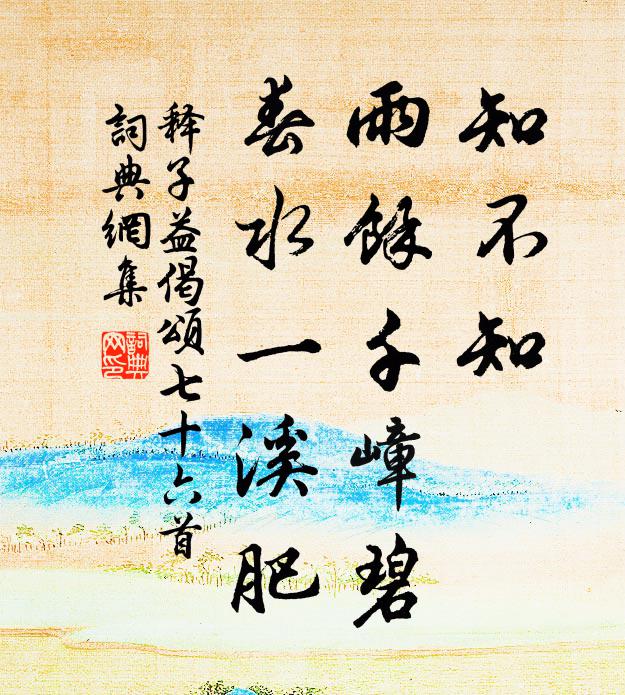 知不知
雨餘千嶂碧
春水一溪肥
释子益偈頌七十六首
詞典網集
詞典網印